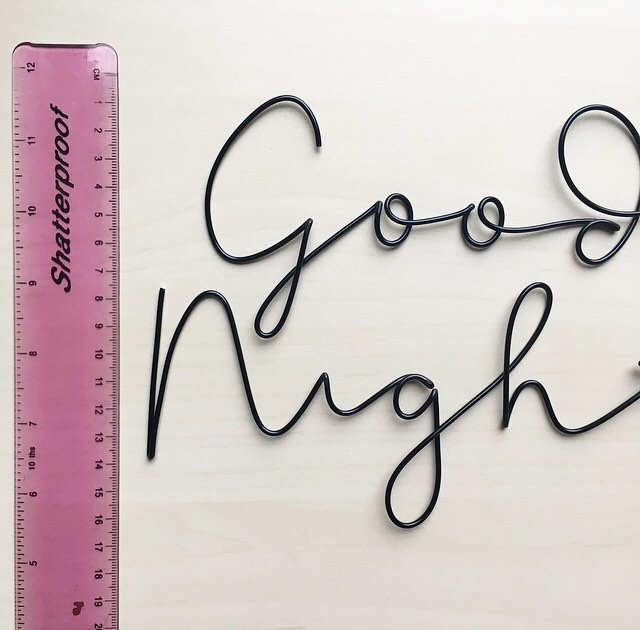 Good
Nigh
Shatterproof
CM
1 2 3 4 5 6 7 8 9 10 11 12 13 14 15 16 17 18 19
12 11 10 9 8 7 6 5
10 ths